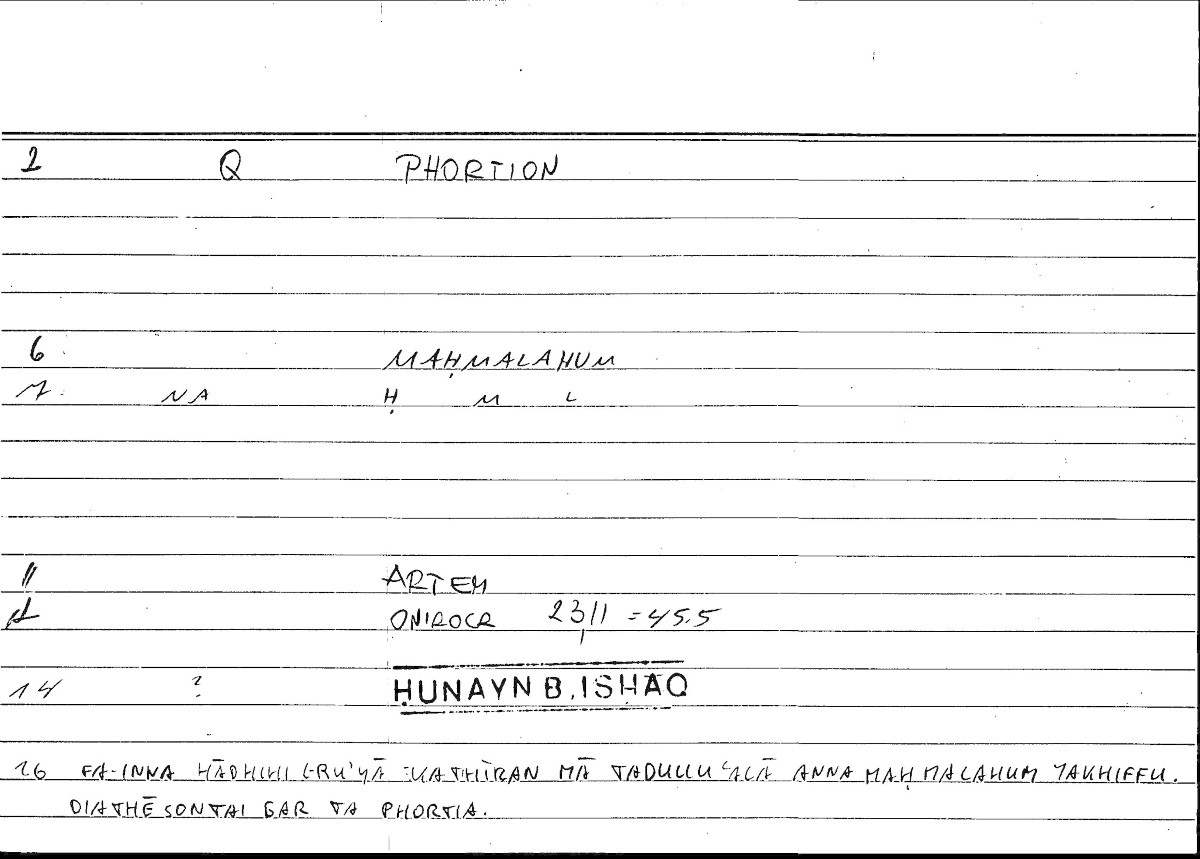 1 Q PHORTION
6 MAḤMALAHUM
7. NA Ḥ M L
11 ARTEM
ONIROCR 23,11 = 45.5
14 ? ḤUNAYN B. ISḤAQ
16 FA-INNA HĀDHIHI L-RU'YĀ KATHĪRAN MĀ TADULLU ʿALĀ ANNA MAḤMALAHUM YAKHIFFU.
DIATHĒSONTAI GAR TA PHORTIA.